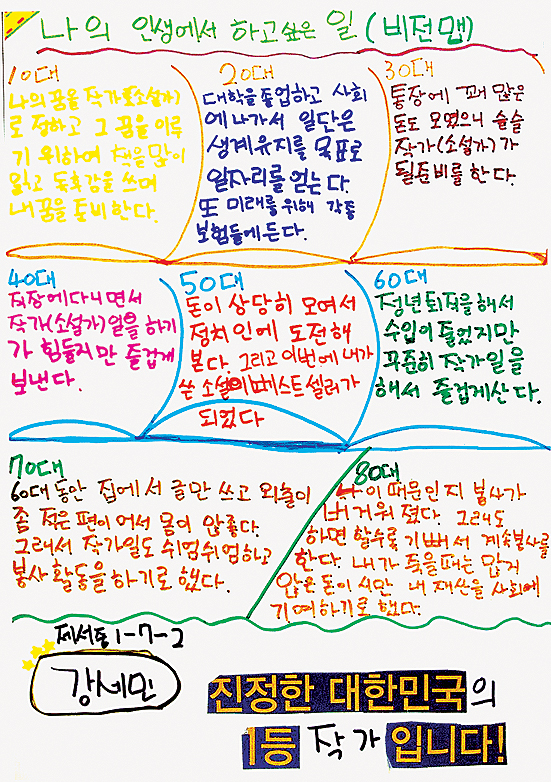 나의 인생에서 하고싶은 일 (비전맵)
10대
나의 꿈을 작가(소설가)
로 정하고 그 꿈을 이루
기 위하여 책을 많이
읽고 독후감을 쓰며
내 꿈을 준비한다.
20대
대학을 졸업하고 사회
에 나가서 일단은
생계유지를 목표로
일자리를 얻는다.
또 미래를 위해 각종
보험들에 든다.
30대
통장에 꽤 많은
돈도 모였으니 슬슬
작가(소설가)가
될 준비를 한다.
40대
직장에 다니면서
작가(소설가)일을 하기
가 힘들지만 즐겁게
보낸다.
50대
돈이 상당히 모여서
정치인에 도전해
본다. 그리고 이번에 내가
쓴 소설이 베스트셀러가
되었다
60대
정년퇴직을 해서
수입이 줄었지만
꾸준히 작가일을
해서 즐겁게 산다.
70대
60대 동안 집에서 글만 쓰고 외출이
좀 적은 편이어서 몸이 안좋다.
그래서 작가일도 쉬엄쉬엄하고
봉사활동을 하기로 했다.
80대
나이 때문인지 봉사가
버거워졌다. 그래도
하면 할수록 기뻐서 계속봉사를
한다. 내가 죽을때는 많거
않은 돈이지만 내 재산을 사회에
기여하기로 했다.
제서동 1-7-2
강세민
진정한 대한민국의
1등 작가 입니다!